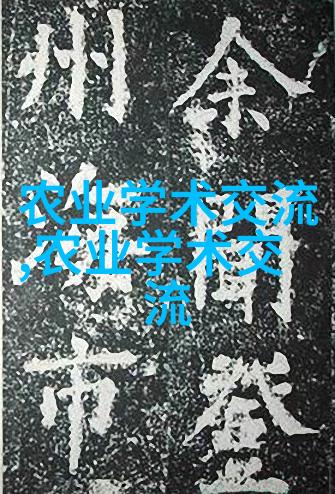 余聞登
州海市
农业学术交流
,农业学术交
流